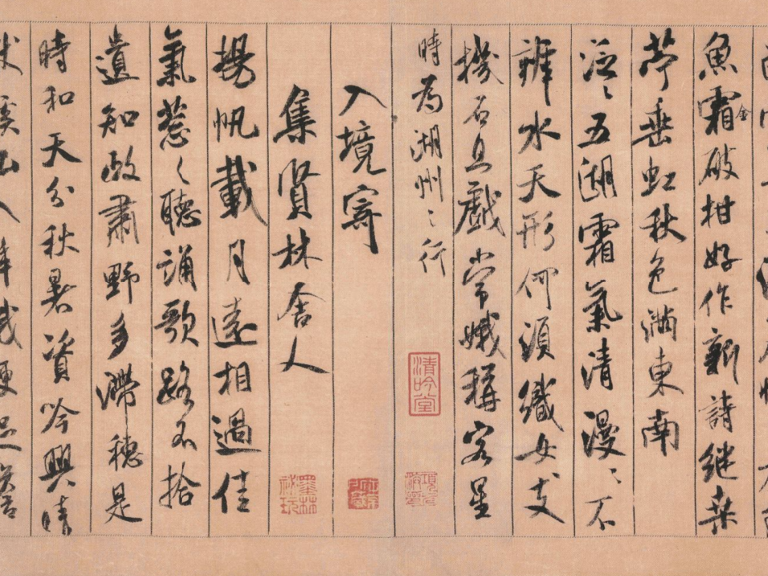 魚霜金破柑好作新詩継桒
苧垂虹秋色滿東南
泛〻五湖霜氣清漫〻不
辨水天形何須織女支
機石且戲常娥稱客星
時為湖州之行
清吟堂
入境寄
集賢林舍人
揚帆載月遠相過佳
氣葱〻聽誦歌路不拾
遺知政肅野多滯穗是
時和天分秋暑資吟興晴